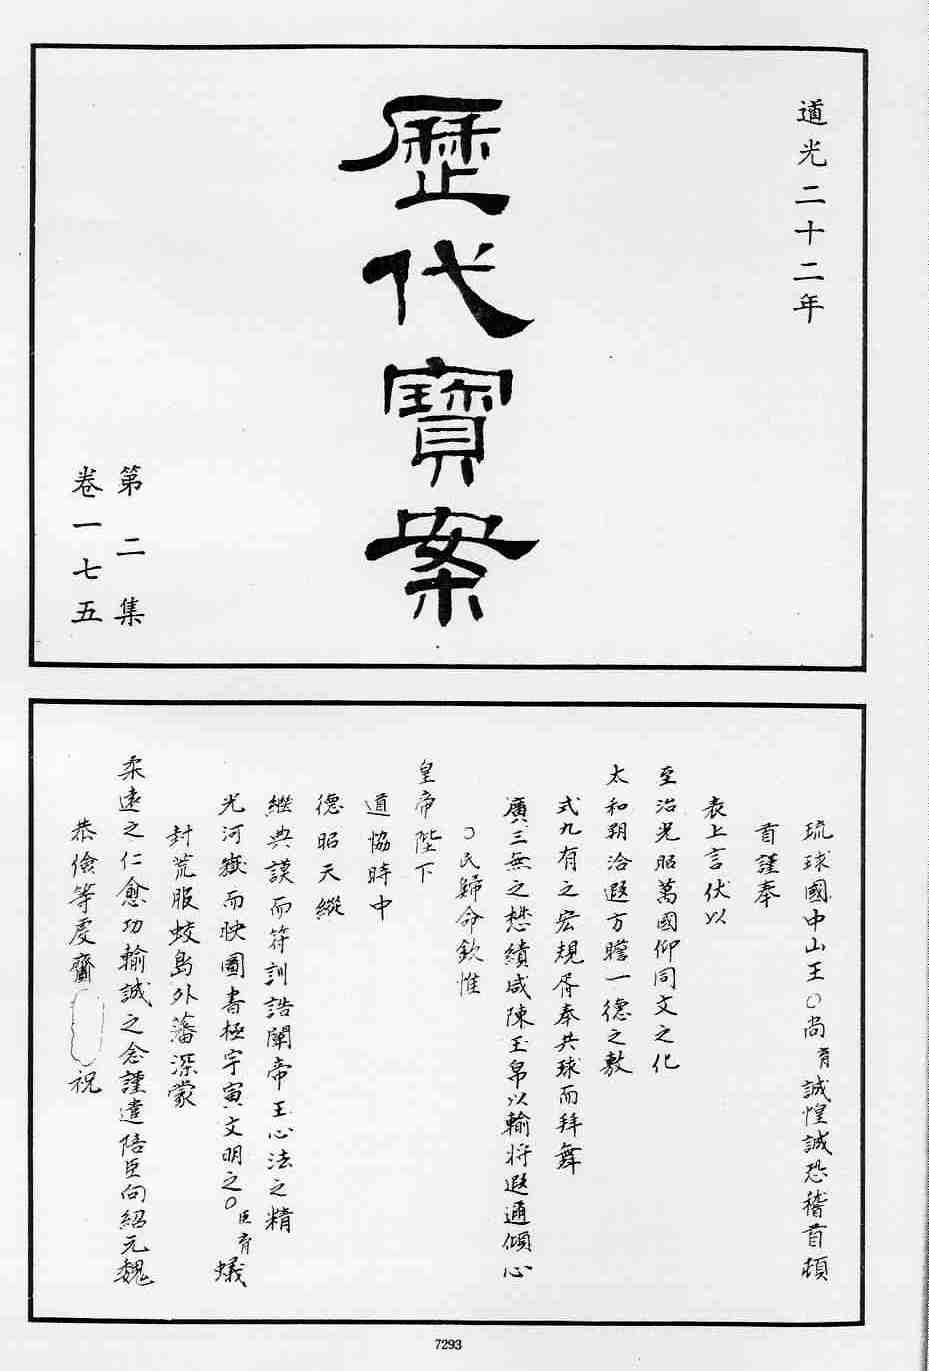 道光二十二年
歷代寶案
第二集
卷一七五
琉球國中山王○尚育誠惶誠恐稽首頓
首謹奉
表上言伏以
至治光昭萬國仰同文之化
太和朔洽遐方瞻一德之敷
式九有之宏規胥奉共球而拜舞
廣三無之懋績咸陳玉帛以輸將遐通傾心
○民歸命欽惟
皇帝陛下
道協時中
德昭天縱
繼典謨而符訓誥闡帝王心法之精
光河嶽而快圖書極宇寅文明之○臣育蟻
封荒服蛟島外藩深蒙
柔遠之仁愈功輸誠之念謹遣陪臣向紹元魏
恭儉等虔齎祝
7293